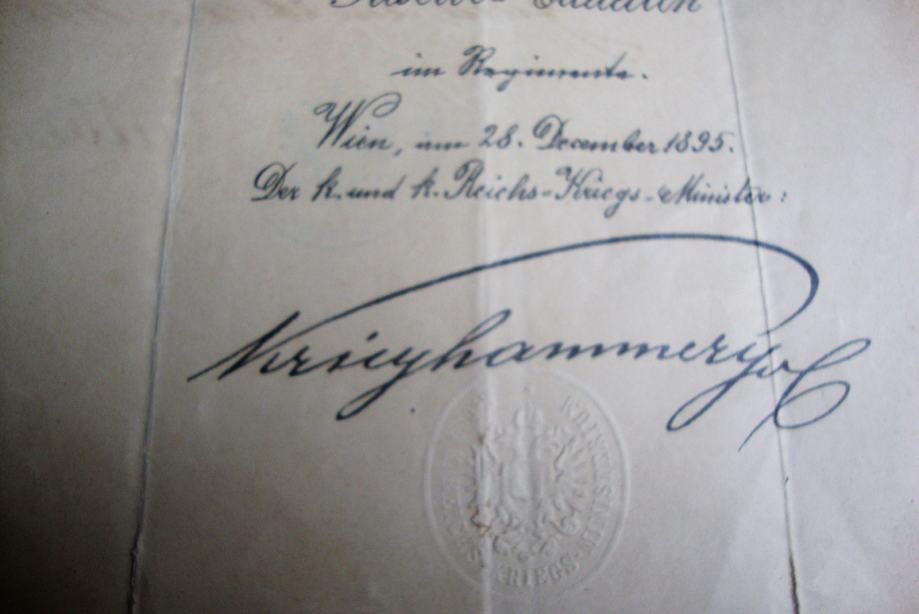 im Regimente.
Wien, am 28. December 1895.
Der k. und k. Reichs-Kriegs-Minister:
Krieghammer
REICHS-KRIEGS-MINIST